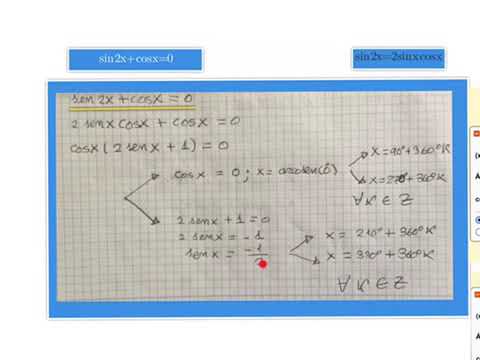 sin2x+cosx=0
sin2x=2sinxcosx
sen 2x + cosx = 0
2 senx cosx + cosx = 0
cosx ( 2 senx + 1 ) = 0
cosx = 0 ; x =
x = 90° + 360°K
x = 270° + 360°K
∀ K ∈ Z
2 senx + 1 = 0
2 senx = - 1
senx = -1/2
x = 210° + 360°K
x = 330° + 360°K
∀ K ∈ Z